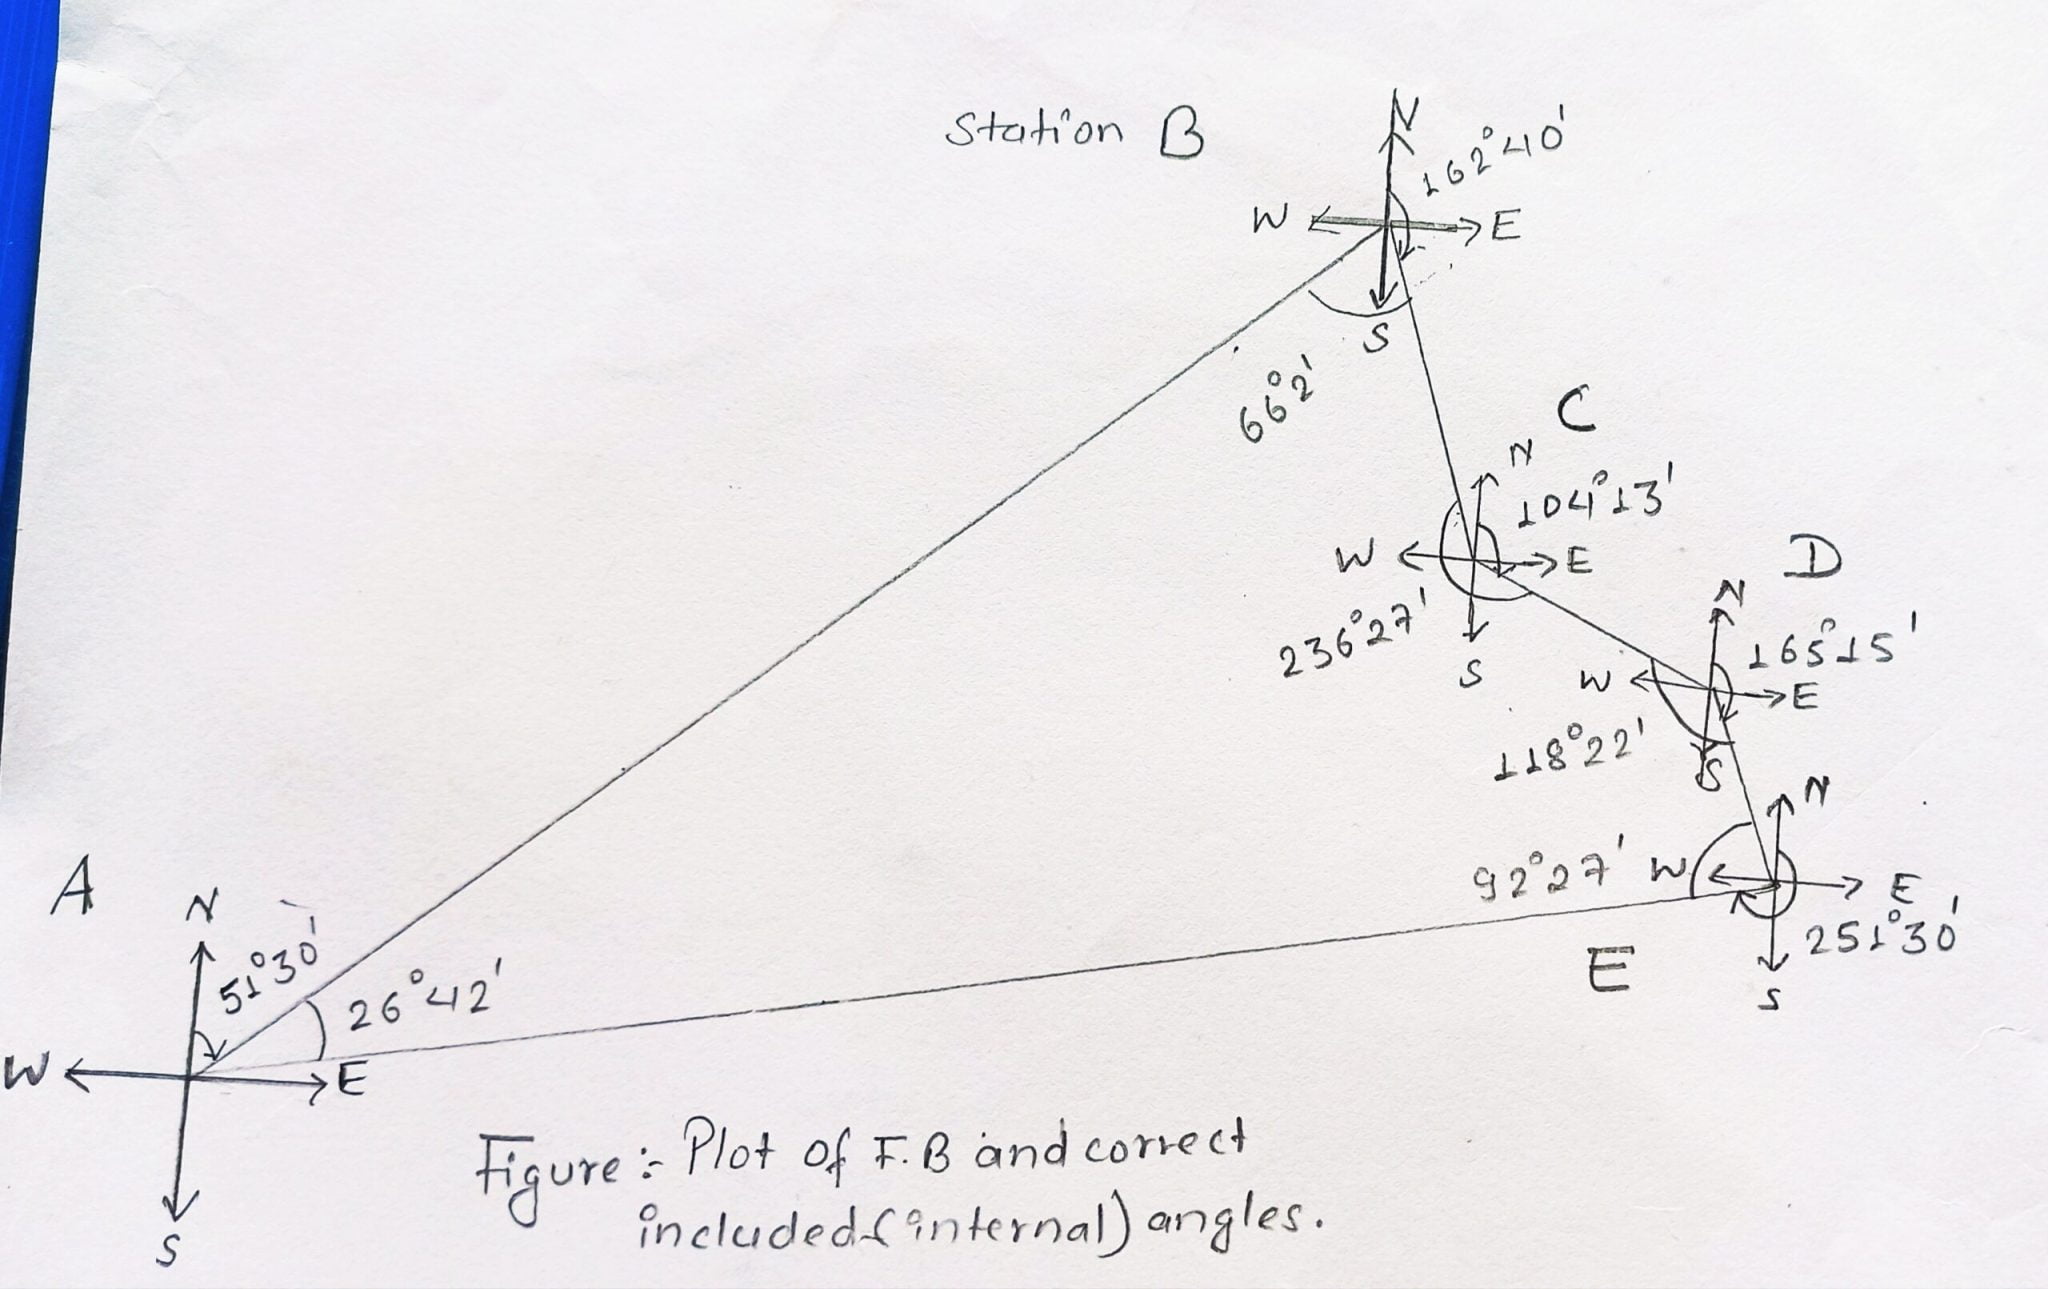 Station B
N
162°40'
W
E
S
66°2'
C
N
104°13'
W
E
236°27'
S
D
N
165°15'
W
E
118°22'
S
N
92°27'
W
E
251°30'
E
S
A
N
51°30'
26°42'
W
E
S
Figure :- Plot of F.B and correct
included (internal) angles.